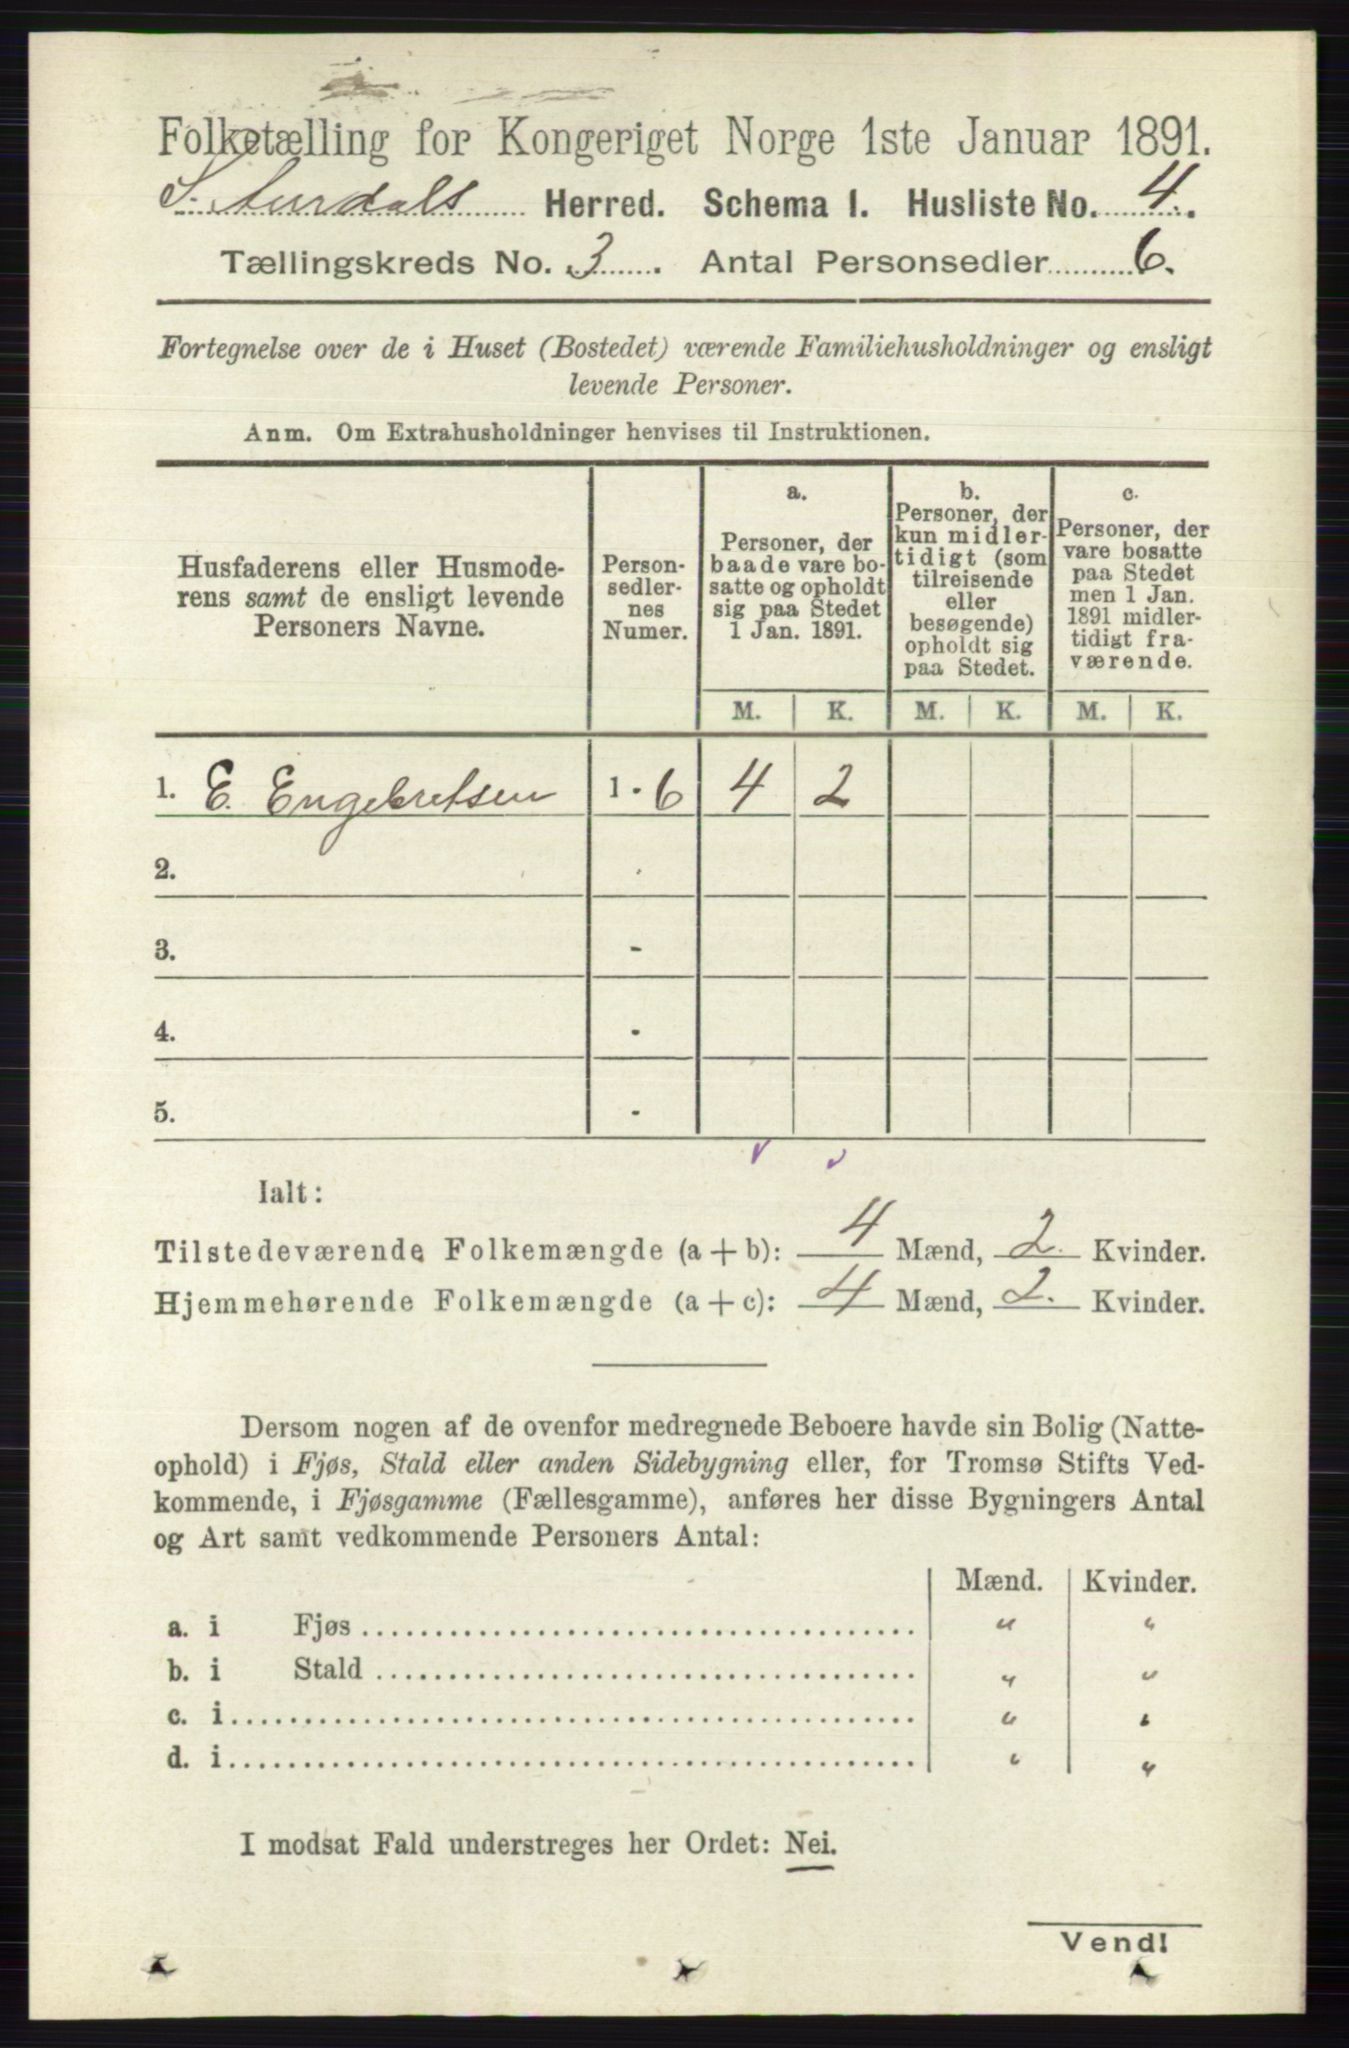 Folketælling for Kongeriget Norge 1ste Januar 1891.
S. Aurdals Herred. Schema 1. Husliste No. 4.
Tællingskreds No. 3. Antal Personsedler 6.
Fortegnelse over de i Huset (Bostedet) værende Familiehusholdninger og ensligt
levende Personer.
Anm. Om Extrahusholdninger henvises til Instruktionen.
Husfaderens eller Husmode-
rens samt de ensligt levende
Personers Navne.
Person-
sedler-
nes
Numer.
a.
Personer, der
baade vare bo-
satte og opholdt
sig paa Stedet
1 Jan. 1891.
b.
Personer, der
kun midler-
tidigt (som
tilreisende
eller
besøgende)
opholdt sig
paa Stedet.
c.
Personer, der
vare bosatte
paa Stedet
men 1 Jan.
1891 midler-
tidigt fra-
værende.
M. K. M. K. M. K.
1. E. Engebretsen 1 - 6 4 2
2.
3. -
4. -
5. -
Ialt:
Tilstedeværende Folkemængde (a + b): 4 Mænd, 2. Kvinder.
Hjemmehørende Folkemængde (a + c): 4 Mænd, 2. Kvinder.
Dersom nogen af de ovenfor medregnede Beboere havde sin Bolig (Natte-
ophold) i Fjøs, Stald eller anden Sidebygning eller, for Tromsø Stifts Ved-
kommende, i Fjøsgamme (Fællesgamme), anføres her disse Bygningers Antal
og Art samt vedkommende Personers Antal:
Mænd. Kvinder.
a. i Fjøs " "
b. i Stald " "
c. i " "
d. i " "
I modsat Fald understreges her Ordet: Nei.
Vend!